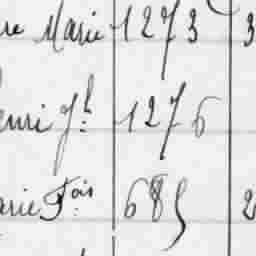 re Marie 1273 3
enri Jh 1276
arie Fois 685 2